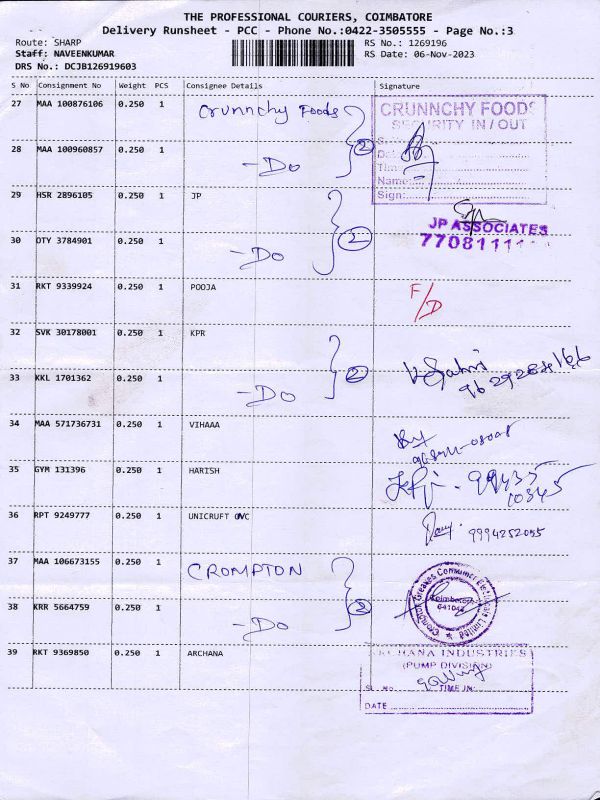 THE PROFESSIONAL COURIERS, COIMBATORE
Delivery Runsheet - PCC - Phone No.:0422-3505555 - Page No.:3
Route: SHARP
RS No.: 1269196
Staff: NAVEENKUMAR
RS Date: 06-Nov-2023
DRS No.: DCJB126919603
S No Consignment No Weight PCS Consignee Details Signature
27 MAA 100876106 0.250 1 Crunnchy Foods
CRUNNCHY FOODS
SECURITY IN / OUT
28 MAA 100960857 0.250 1 -Do 2
Name:
Sign:
29 HSR 2896105 0.250 1 JP
JP ASSOCIATES
77081111
30 OTY 3784901 0.250 1 -Do 2
31 RKT 9339924 0.250 1 POOJA F/D
32 SVK 30178001 0.250 1 KPR
33 KKL 1701362 0.250 1 -Do 2
34 MAA 571736731 0.250 1 VIHAAA
35 GYM 131396 0.250 1 HARISH 99435
10345
36 RPT 9249777 0.250 1 UNICRUFT 9994252055
37 MAA 106673155 0.250 1 CROMPTON
Crompton Greaves Consumer Electricals Limited
Coimbatore
38 KRR 5664759 0.250 1 -Do 2
39 RKT 9369850 0.250 1 ARCHANA
ARCHANA INDUSTRIES
(PUMP DIVISION)
SL. No. TIME IN:
DATE